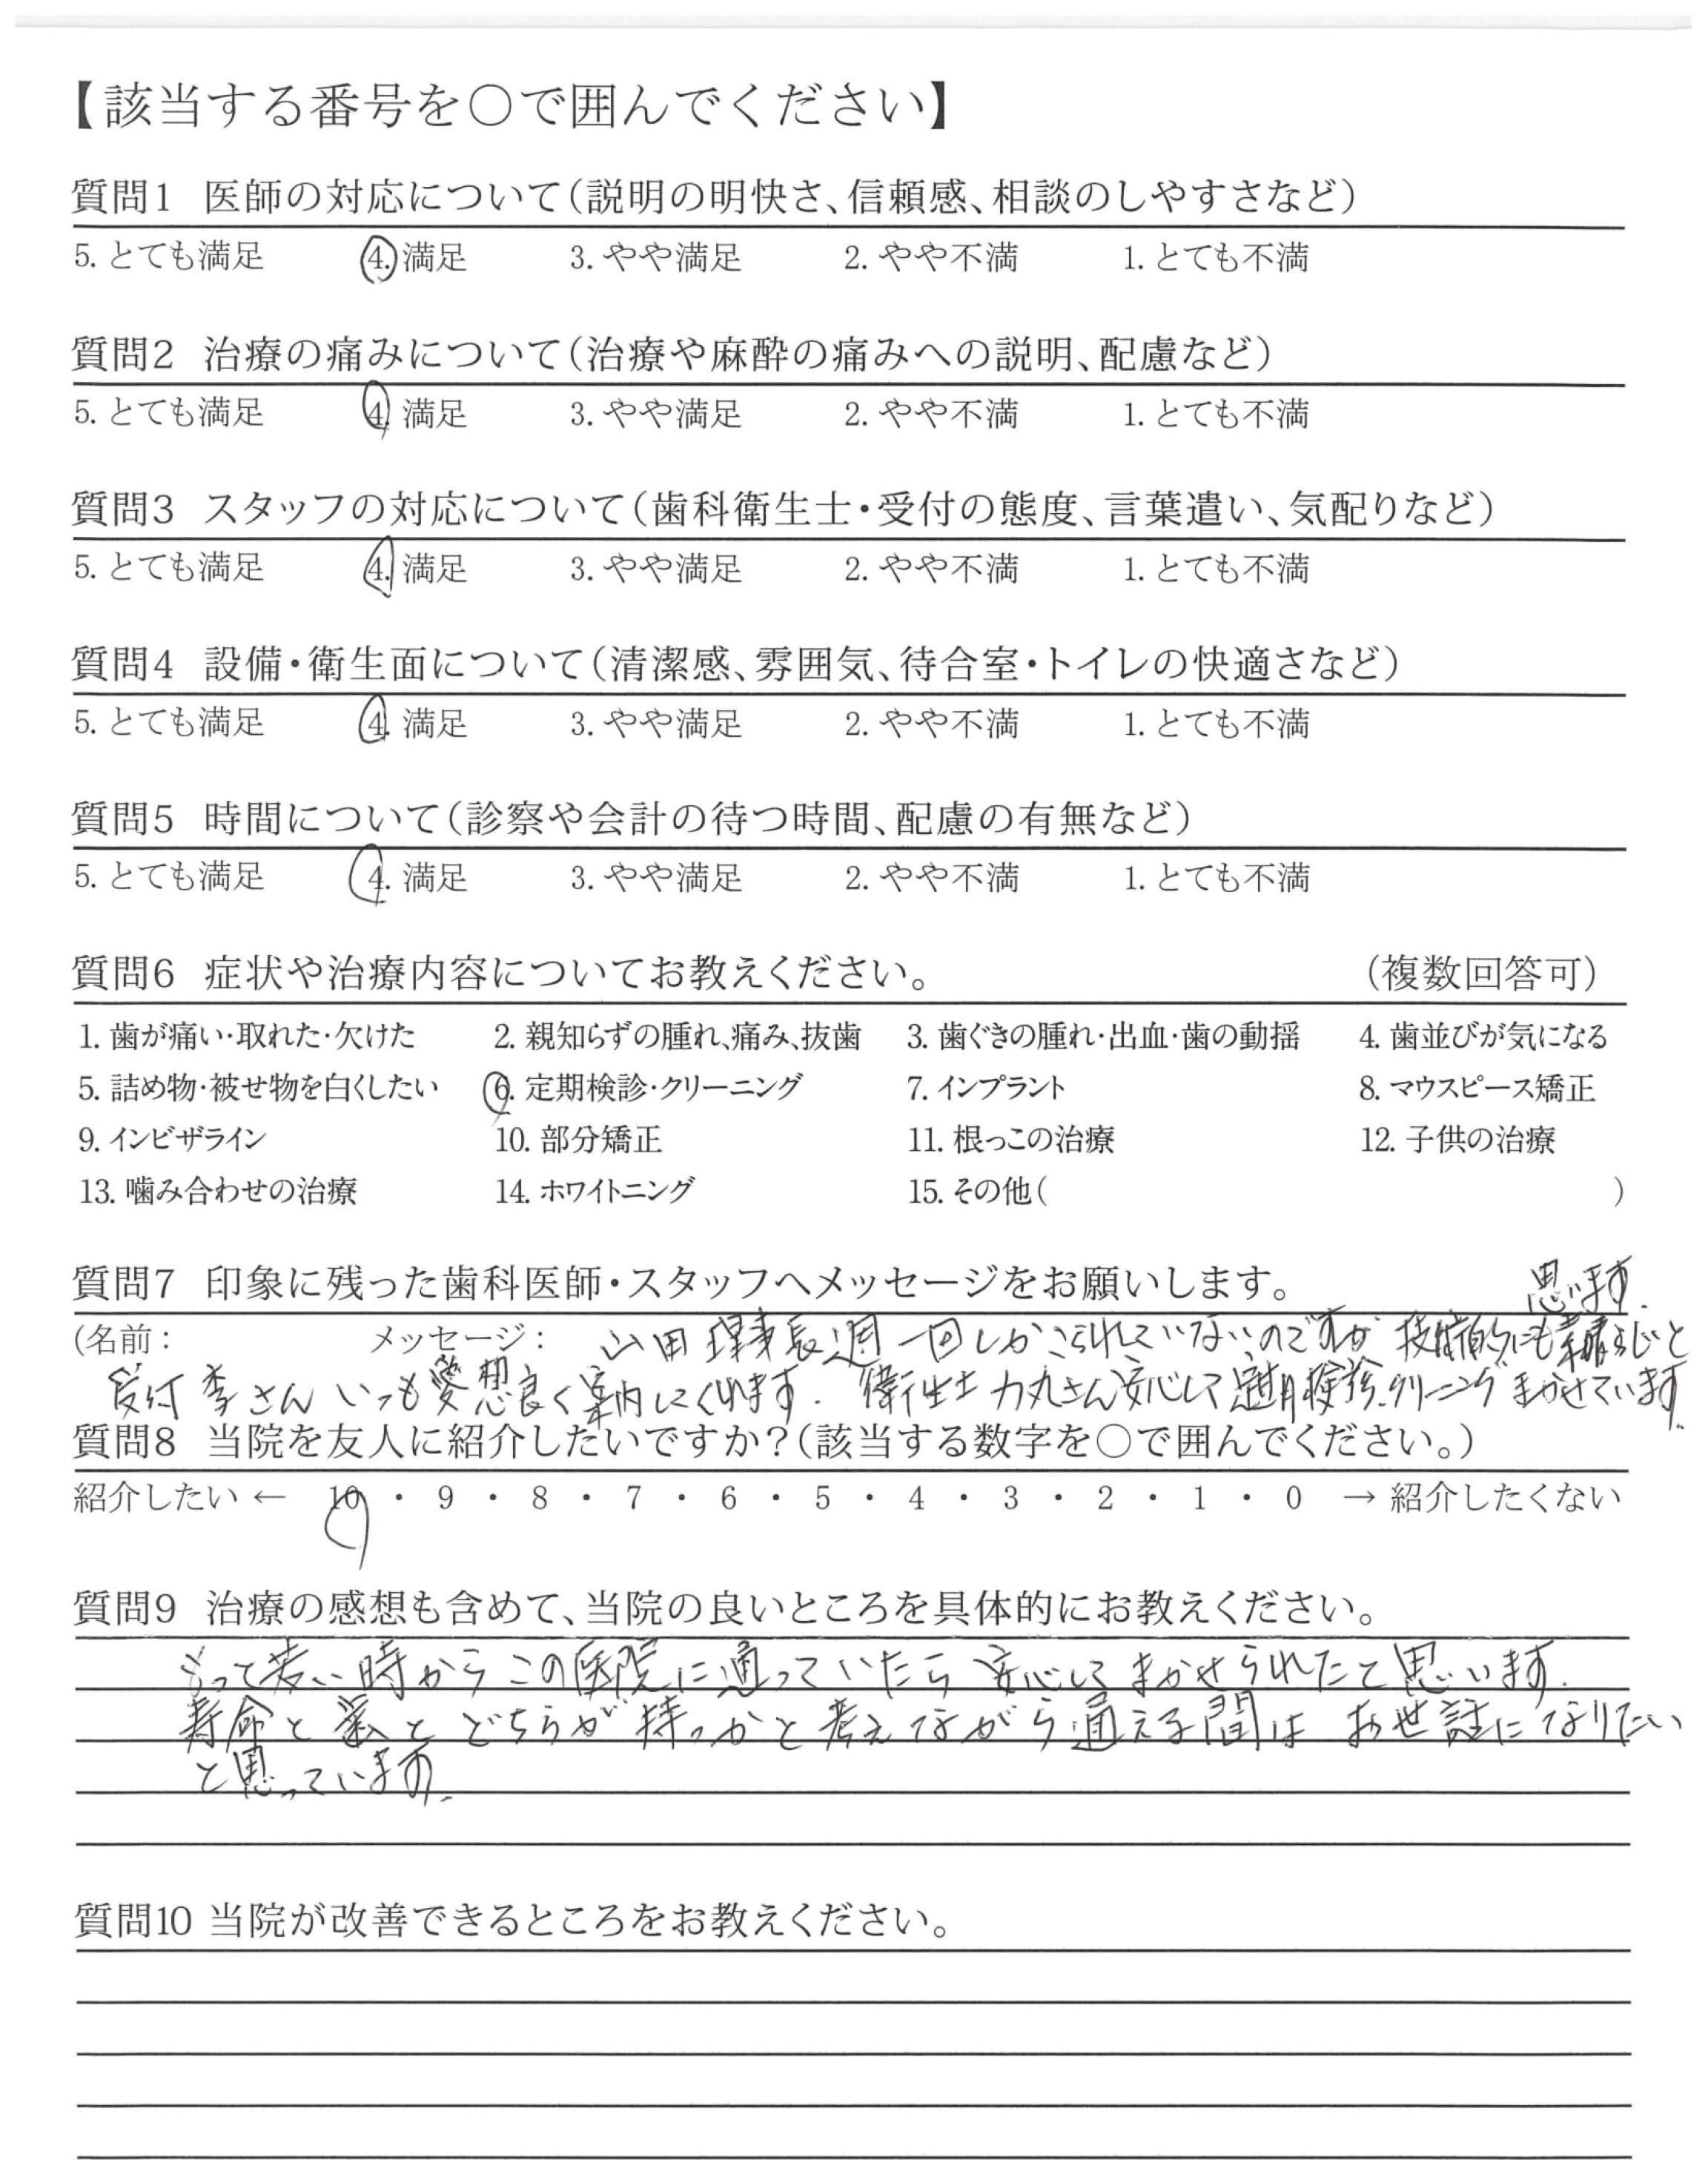 【該当する番号を○で囲んでください】
質問1 医師の対応について(説明の明快さ、信頼感、相談のしやすさなど)
5. とても満足 4. 満足 3. やや満足 2. やや不満 1. とても不満
質問2 治療の痛みについて(治療や麻酔の痛みへの説明、配慮など)
5. とても満足 4. 満足 3. やや満足 2. やや不満 1. とても不満
質問3 スタッフの対応について(歯科衛生士・受付の態度、言葉遣い、気配りなど)
5. とても満足 4. 満足 3. やや満足 2. やや不満 1. とても不満
質問4 設備・衛生面について(清潔感、雰囲気、待合室・トイレの快適さなど)
5. とても満足 4. 満足 3. やや満足 2. やや不満 1. とても不満
質問5 時間について(診察や会計の待つ時間、配慮の有無など)
5. とても満足 4. 満足 3. やや満足 2. やや不満 1. とても不満
質問6 症状や治療内容についてお教えください。 (複数回答可)
1. 歯が痛い・取れた・欠けた 2. 親知らずの腫れ、痛み、抜歯 3. 歯ぐきの腫れ・出血・歯の動揺 4. 歯並びが気になる
5. 詰め物・被せ物を白くしたい 6. 定期検診・クリーニング 7. インプラント 8. マウスピース矯正
9. インビザライン 10. 部分矯正 11. 根っこの治療 12. 子供の治療
13. 噛み合わせの治療 14. ホワイトニング 15. その他( )
質問7 印象に残った歯科医師・スタッフへメッセージをお願いします。
(名前: メッセージ: 山田理事長週一回しかこられていないのですが 技術的にも素晴らしいと
思います.
受付 李さん いつも愛想良く案内してくれます. 衛生士 力丸さん安心して定期検診.クリーニングまかせています.
質問8 当院を友人に紹介したいですか?(該当する数字を○で囲んでください。)
紹介したい ← 10 ・ 9 ・ 8 ・ 7 ・ 6 ・ 5 ・ 4 ・ 3 ・ 2 ・ 1 ・ 0 → 紹介したくない
質問9 治療の感想も含めて、当院の良いところを具体的にお教えください。
もって若い時からこの医院に通っていたら 安心してまかせられたと思います.
寿命と歯と どちらが持つかと考えながら通える間は お世話になりたい
と思っています.
質問10 当院が改善できるところをお教えください。